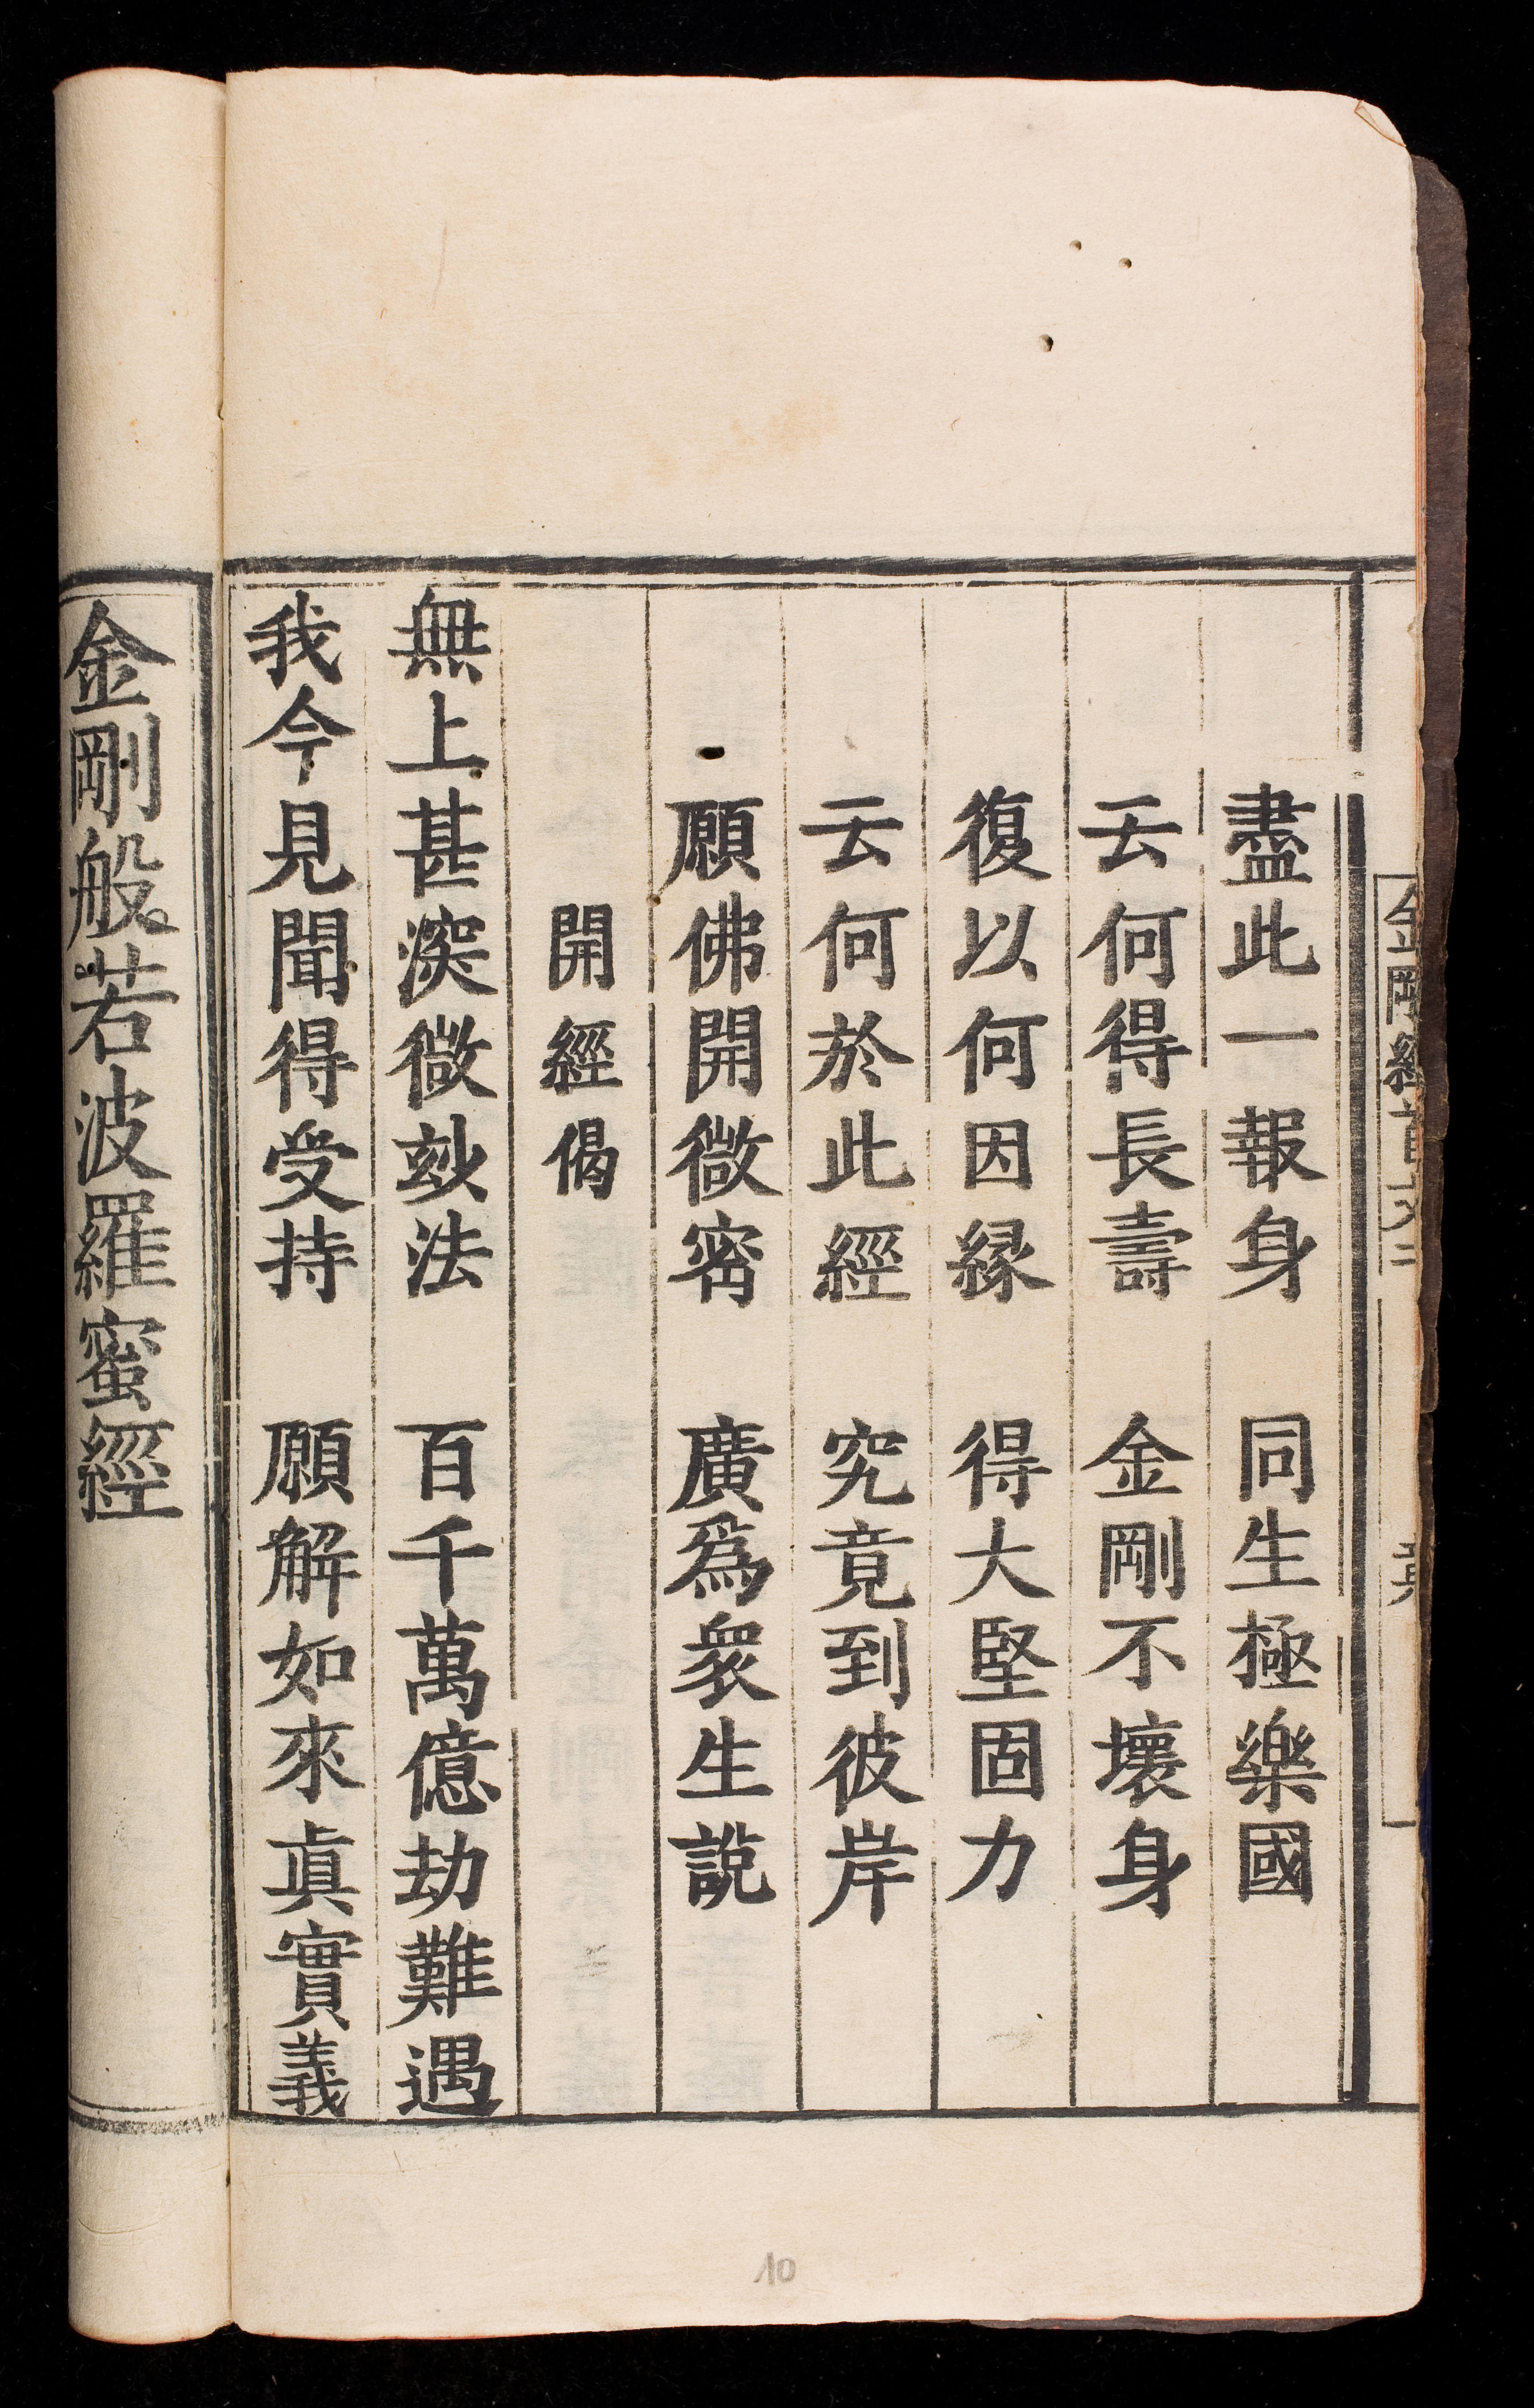 盡此一報身　同生極樂國
云何得長壽　金剛不壞身
復以何因緣　得大堅固力
云何於此經　究竟到彼岸
願佛開微宻　廣爲衆生説
開經偈
無上甚深微玅法　百千萬億劫難遇
我今見聞得受持　願解如來眞實義
金剛般若波羅蜜經
10